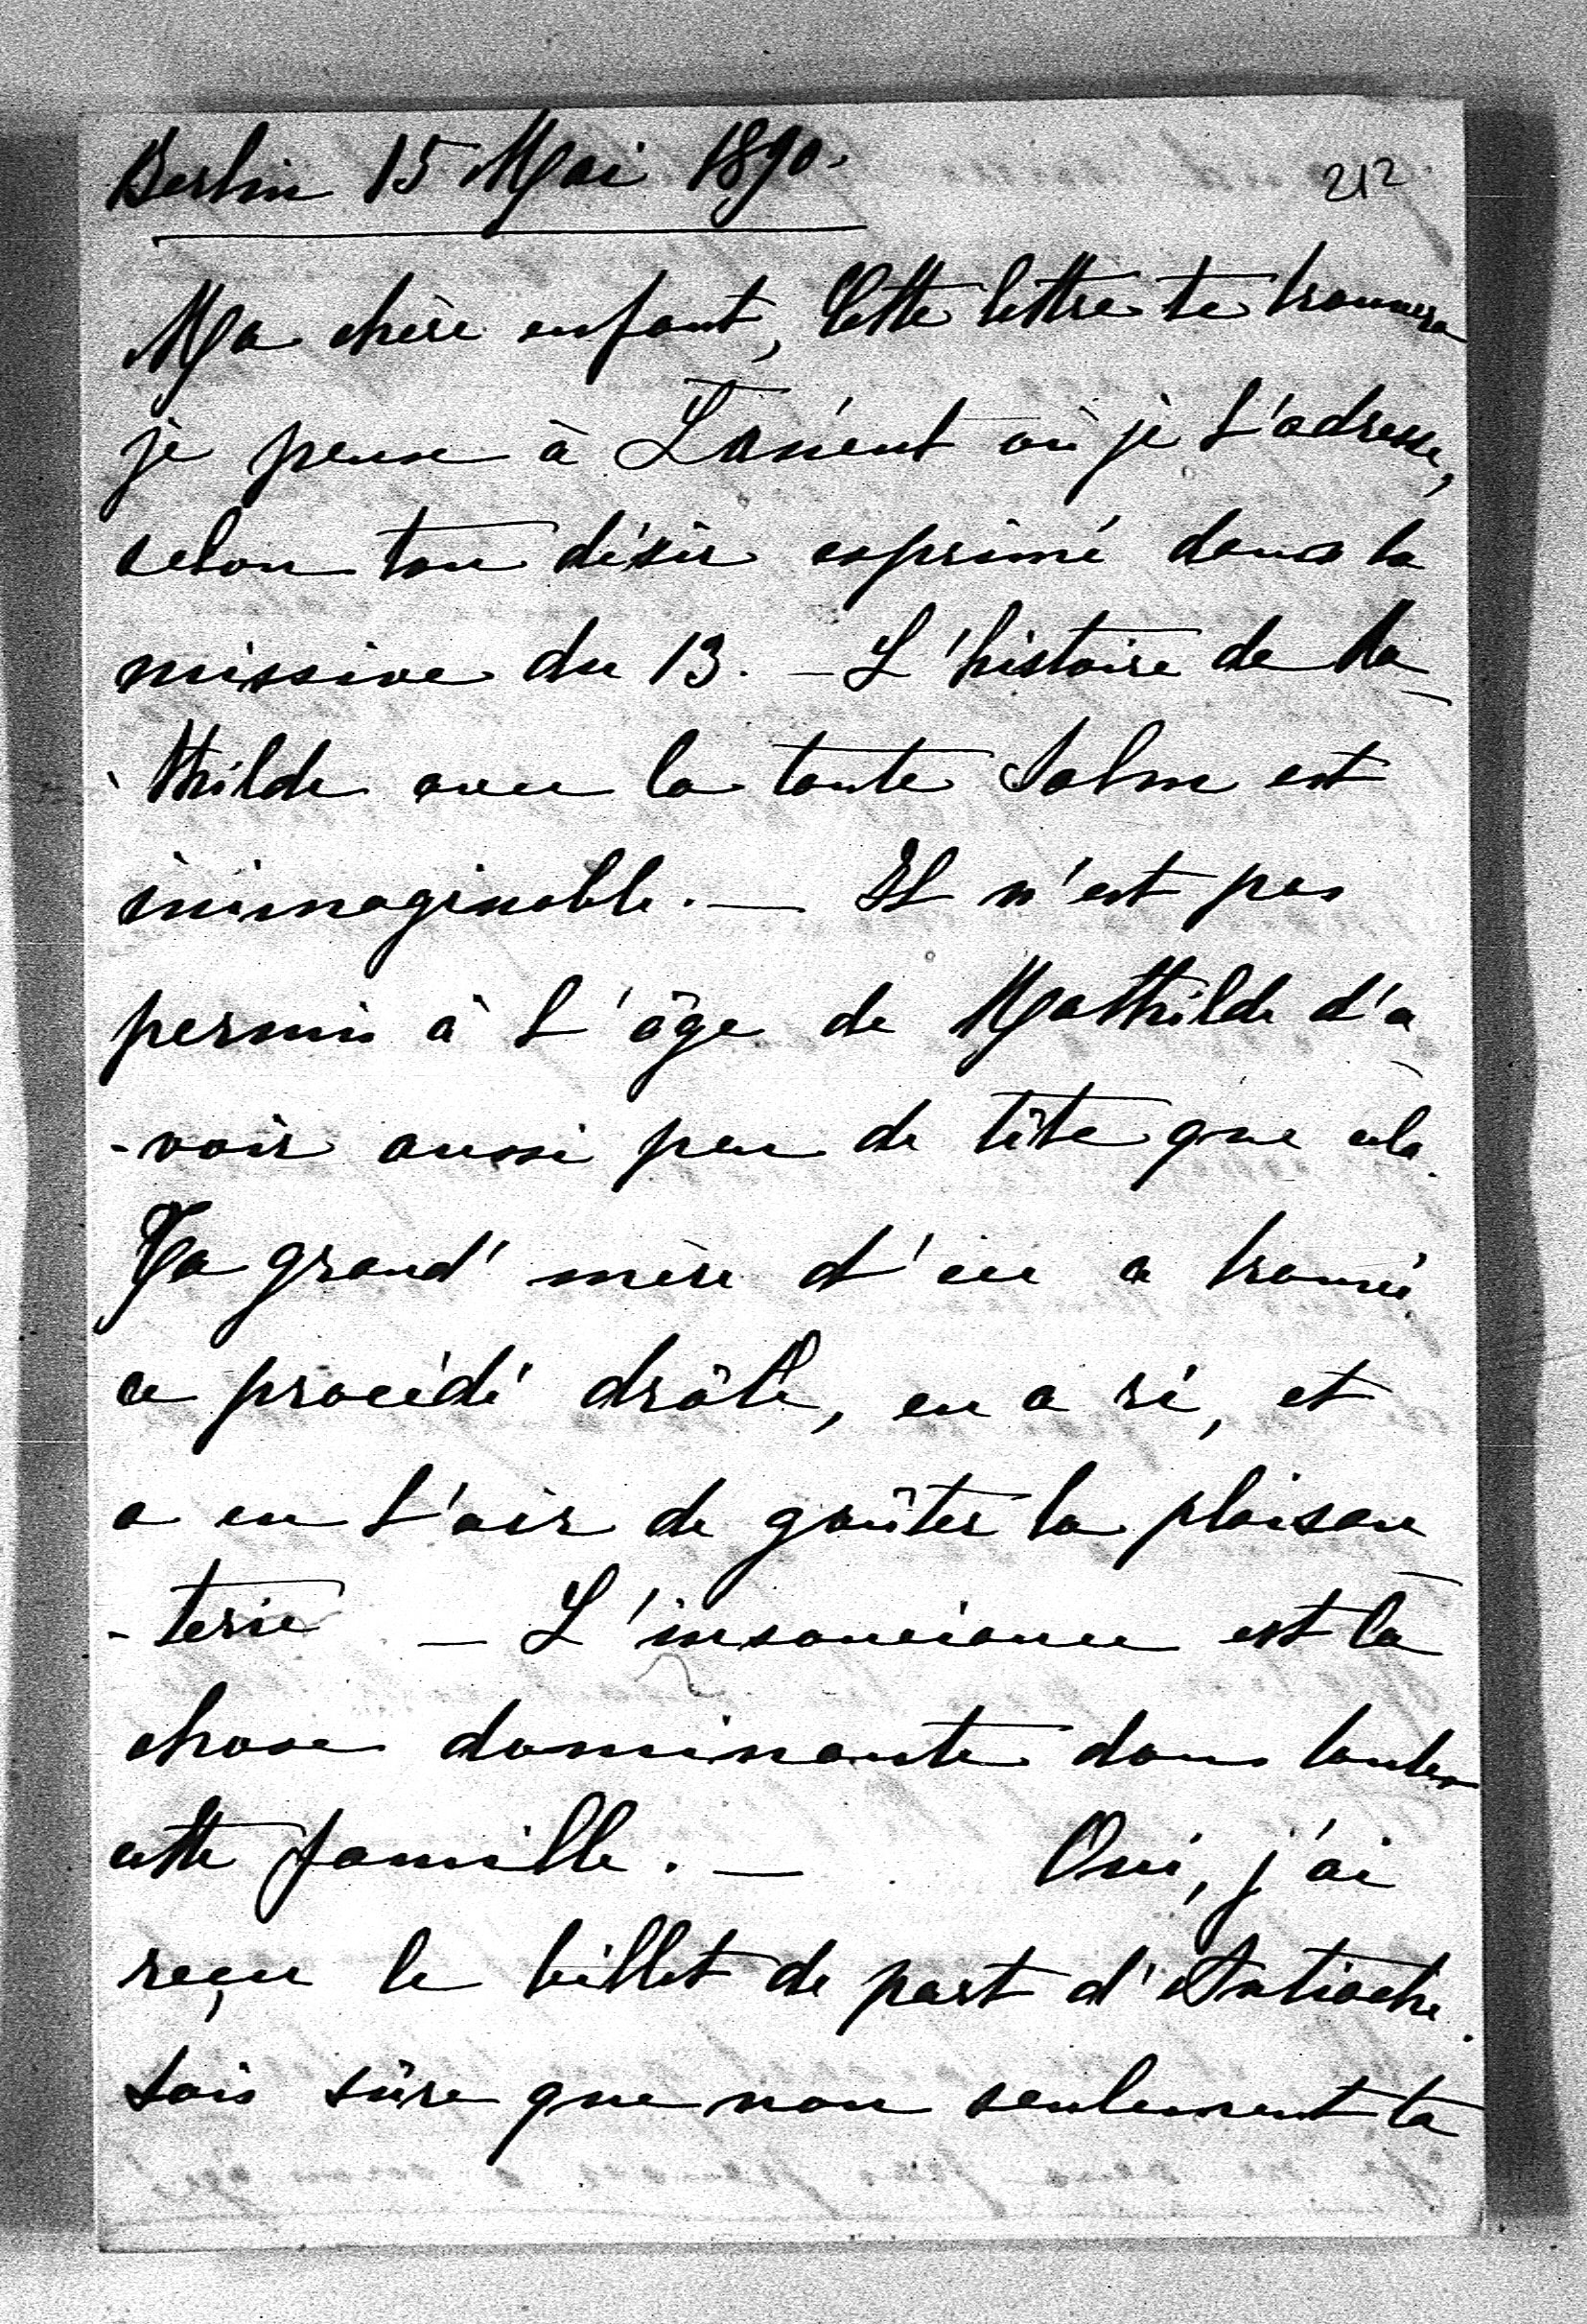 Berlin 15 Mai 1890.
212
Ma chère enfant, Cette lettre te trouvera
je pense à où je l'adresse,
selon ton désir exprimé dans ta
missive du 13. — L'histoire de Ma
thilde avec la tante Salm est
inimaginable. — Il n'est pas
permis à l'âge de Mathilde d'a
-voir aussi peu de tête que cela.
Ta grand' mère d'ici a trouvé
ce procédé drôle, en a ri, et
a eu l'air de goûter la plaisan
-terie — L'insouciance est la
chose dominante dans toute
cette famille. — Oui, j'ai
reçu le billet de part d'Antioche.
Sois sûre que non seulement ta